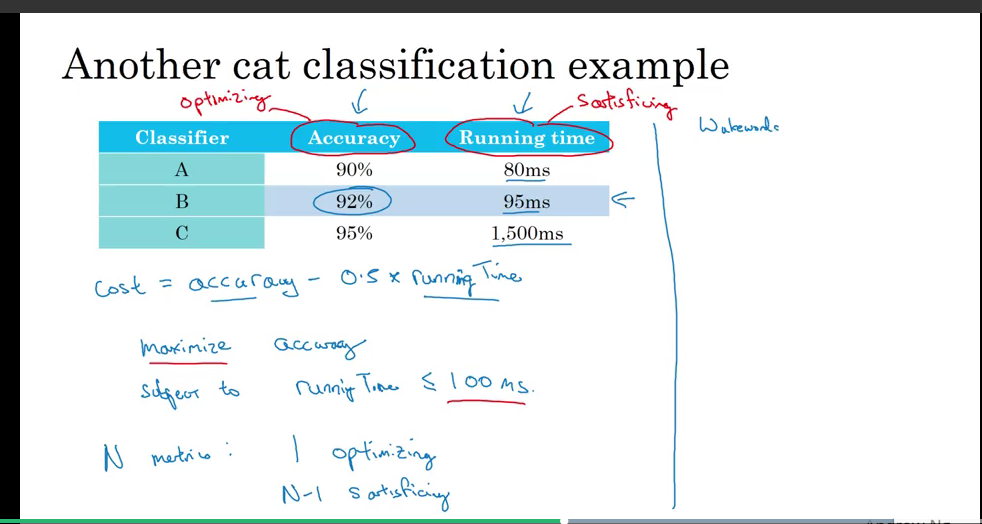 Another cat classification example
optimizing
Satisficing
Classifier Accuracy Running time
A 90% 80ms
B 92% 95ms
C 95% 1,500ms
cost = accuracy - 0.5 x running Time
maximize accuracy
subject to running Time ≤ 100 ms.
N metrics: 1 optimizing
N-1 satisficing
Wakewords
Andrew Ng